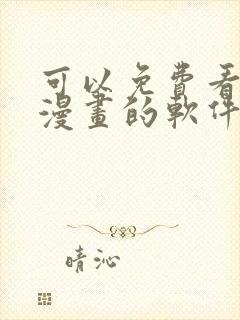 可以免費看
漫畫的軟件
晴沁